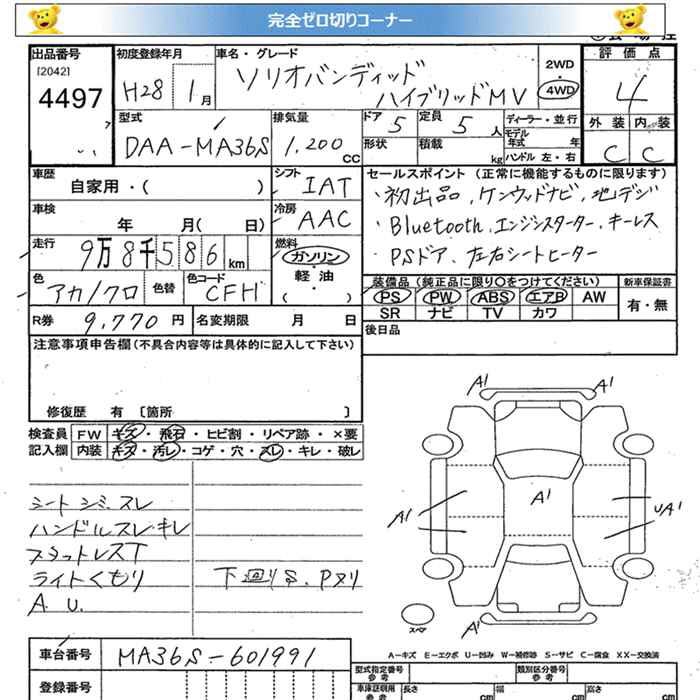 完全ゼロ切りコーナー
出品番号 初度登録年月 車名・グレード 評価点
[2042] 4497 H28 1月 ソリオバンディッド 2WD・4WD 4
ハイブリッドMV
型式 排気量 ドア 5 定員 5人 ディーラー・並行 外装 内装
DAA-MA36S 1,200 CC 形状 積載 kg モデル年式 年式 ハンドル 左・右 C C
車歴 自家用・( ) シフト IAT セールスポイント (正常に機能するものに限ります)
・初出品、ケンウッドナビ、地デジ
車検 年 月( 日) 冷房 AAC ・Bluetooth、エンジンスターター、キーレス
走行 9万8千586km 燃料 ガソリン・軽油・( ) ・PSドア、左右シートヒーター
色 アカ/クロ 色替 色コード CFH 装備品(純正品に限り○をつけてください) 新車保証書
PS PW ABS エアB AW 有・無
SR ナビ TV カワ
R券 9,770円 名変期限 月 日 後日品
注意事項申告欄(不具合内容等は具体的に記入して下さい)
修復歴 有 [箇所 ]
検査員 FW キズ・飛石・ヒビ割・リペア跡・×要
記入欄 内装 キズ・汚レ・コゲ・穴・スレ・キレ・破レ
シートシミ.スレ
ハンドルスレキレ
フラットレスT
ライトくもり 下回りS、Pヌリ
A.U.
A1 A1
A1 A1 UA1
A1
スペア
A-キズ E-エクボ U-凹み W-補修跡 S-サビ C-腐食 XX-交換済
車台番号 MA36S-601991
型式指定番号 参考 類別区分番号 参考
登録番号 車庫証明用 参考 長さ cm 幅 cm 高さ cm